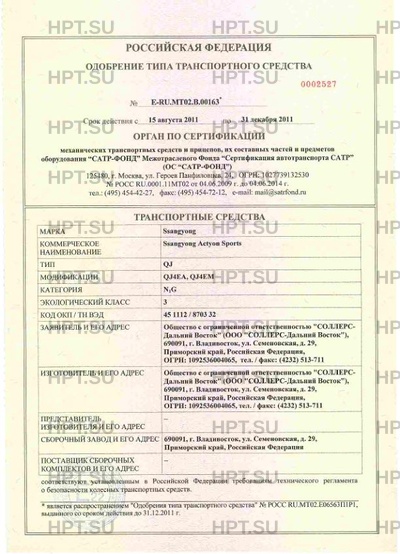 РОССИЙСКАЯ ФЕДЕРАЦИЯ
ОДОБРЕНИЕ ТИПА ТРАНСПОРТНОГО СРЕДСТВА
0002527
№ E-RU.MT02.B.00163*
Срок действия с 15 августа 2011 по 31 декабря 2011
ОРГАН ПО СЕРТИФИКАЦИИ
механических транспортных средств и прицепов, их составных частей и предметов
оборудования "САТР-ФОНД" Межотраслевого Фонда "Сертификация автотранспорта САТР"
(ОС "САТР-ФОНД")
125480, г. Москва, ул. Героев Панфиловцев, 24, ОГРН: 1027739132530
№ РОСС RU.0001.11МТ02 от 04.06.2009 г. до 04.06.2014 г.
тел.: (495) 454-42-27, факс: (495) 454-72-12, e-mail: mail@satrfond.ru
ТРАНСПОРТНЫЕ СРЕДСТВА
МАРКА Ssangyong
КОММЕРЧЕСКОЕ Ssangyong Actyon Sports
НАИМЕНОВАНИЕ
ТИП QJ
МОДИФИКАЦИИ QJ4EA, QJ4EM
КАТЕГОРИЯ N₁G
ЭКОЛОГИЧЕСКИЙ КЛАСС 3
КОД ОКП / ТН ВЭД 45 1112 / 8703 32
ЗАЯВИТЕЛЬ И ЕГО АДРЕС Общество с ограниченной ответственностью "СОЛЛЕРС-
Дальний Восток" (ООО "СОЛЛЕРС-Дальний Восток"),
690091, г. Владивосток, ул. Семеновская, д. 29,
Приморский край, Российская Федерация,
ОГРН: 1092536004065, тел. / факс: (4232) 513-711
ИЗГОТОВИТЕЛЬ И ЕГО АДРЕС Общество с ограниченной ответственностью "СОЛЛЕРС-
Дальний Восток" (ООО "СОЛЛЕРС-Дальний Восток"),
690091, г. Владивосток, ул. Семеновская, д. 29,
Приморский край, Российская Федерация,
ОГРН: 1092536004065, тел. / факс: (4232) 513-711
ПРЕДСТАВИТЕЛЬ –
ИЗГОТОВИТЕЛЯ И ЕГО АДРЕС
СБОРОЧНЫЙ ЗАВОД И ЕГО АДРЕС 690091, г. Владивосток, ул. Семеновская, д. 29,
Приморский край, Российская Федерация
ПОСТАВЩИК СБОРОЧНЫХ –
КОМПЛЕКТОВ И ЕГО АДРЕС
соответствуют установленным в Российской Федерации требованиям технического регламента
о безопасности колесных транспортных средств.
* является распространением "Одобрения типа транспортного средства" № РОСС RU.MT02.E06563П1Р1,
выданного со сроком действия до 31.12.2011 г.
HPT.SU